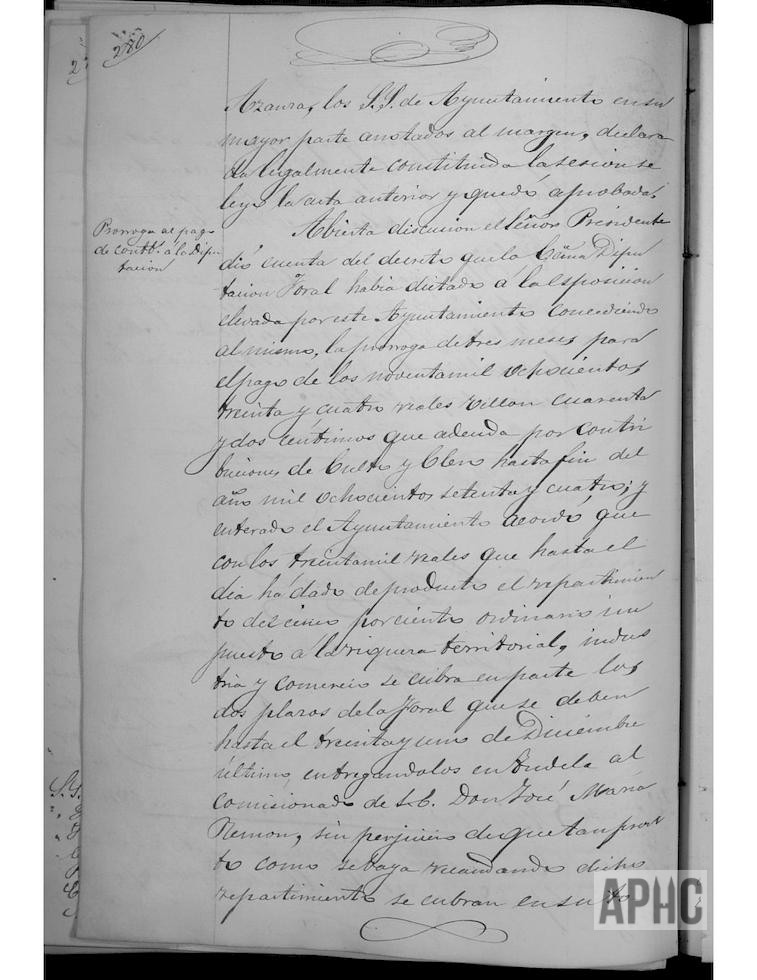 280
Azaura, los S.S. de Ayuntamiento en su
mayor parte anotados al margen, declara
da legalmente constituida la sesion se
leyó la acta anterior y quedó aprobada.
Prorroga al pago
de contt.s á la Dipu
tacion
Abierta discusion el Señor Presidente
dió cuenta del decreto que la Ecsma Dipu
tacion Foral habia dictado á la esposicion
elevada por este Ayuntamiento concediendo
al mismo, la prorroga de tres meses para
el pago de los noventa mil ochocientos
treinta y cuatro reales vellon cuarenta
y dos centimos que adeuda por contri
buciones de Culto y Clero hasta fin del
año mil ochocientos setenta y cuatro; y
enterado el Ayuntamiento acordó que
con los treinta mil reales que hasta el
dia há dado de producto el repartimien
to del cinco por ciento ordinario im
puesto á la riqueza territorial, indus
tria y comercio se cubra en parte los
dos plazos de la Foral que se deben
hasta el treinta y uno de Diciembre
último, entregandolos en Tudela al
comisionado de S.E. Don José Maria
Remon, sin perjuicio de que tan pron
to como se vaya recaudando dicho
repartimiento se cubran en su to
APHC